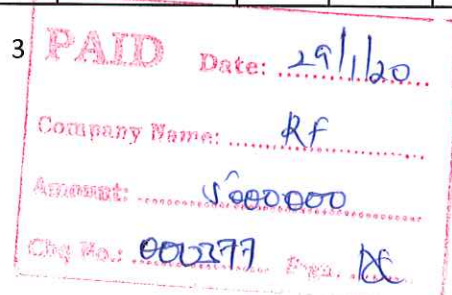 3
PAID Date: 29/1/20
Company Name: RF
Amount: 5000000
Chq No.: 000377